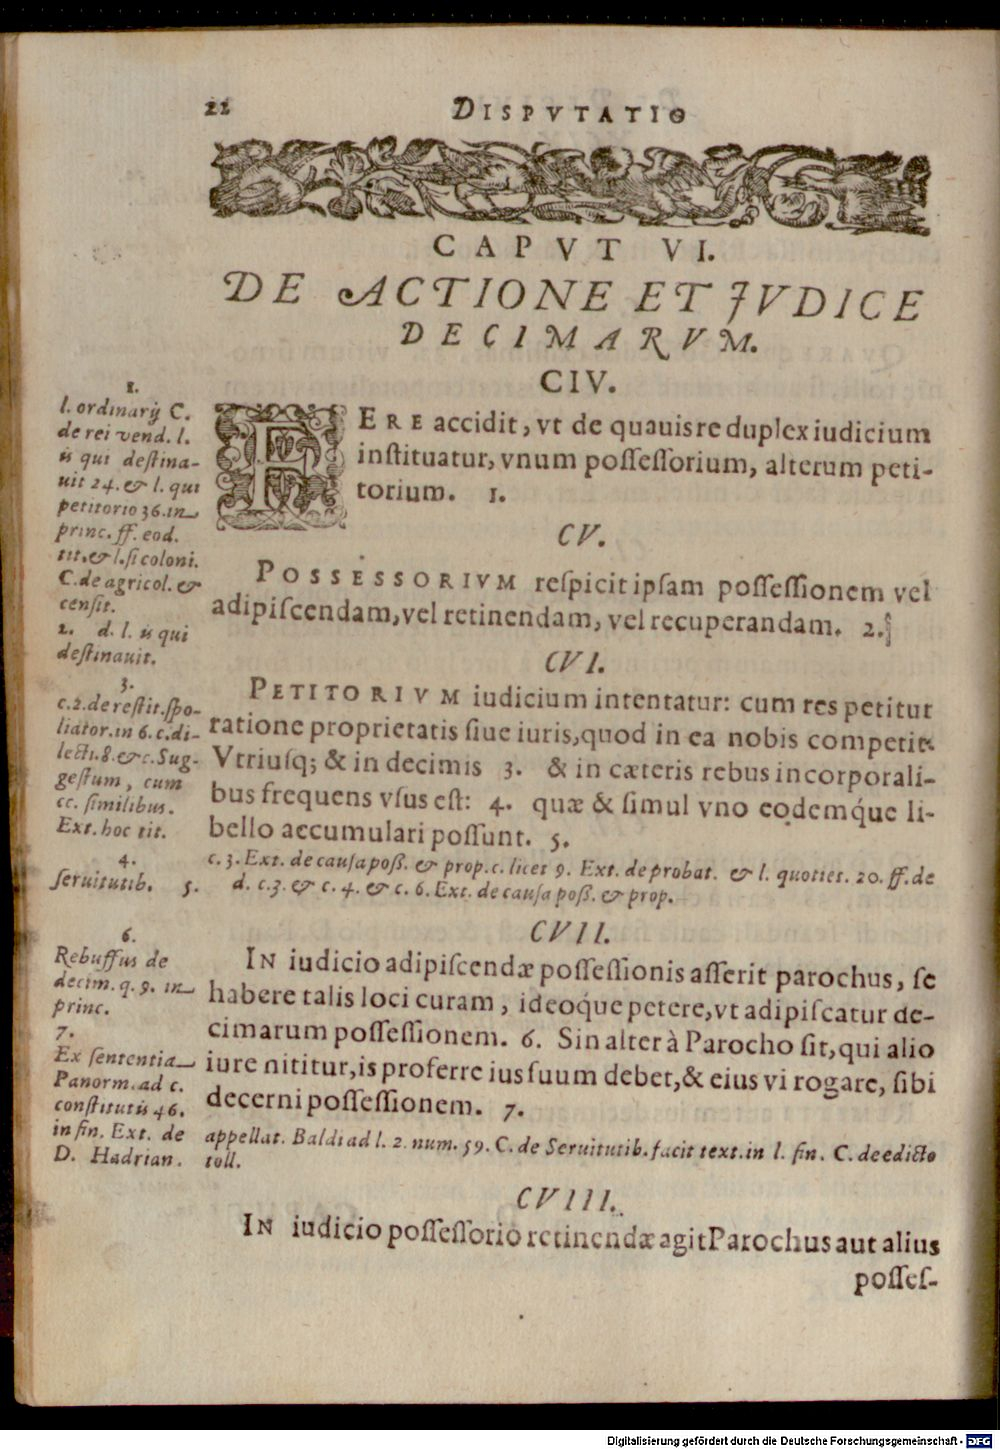 22
DISPVTATIO
CAPVT VI.
DE ACTIONE ET JVDICE
DECIMARVM.
CIV.
FERE accidit, vt de quauis re duplex iudicium
instituatur, vnum possessorium, alterum peti-
torium. 1.
1.
l. ordinarij C.
de rei vend. l.
is qui destina-
uit 24. & l. qui
petitorio 36. in
princ. ff. eod.
tit. & l. si coloni.
C. de agricol. &
censit.
2. d. l. is qui
destinauit.
CV.
POSSESSORIVM respicit ipsam possessionem vel
adipiscendam, vel retinendam, vel recuperandam. 2.
CVI.
PETITORIVM iudicium intentatur: cum res petitur
ratione proprietatis siue iuris, quod in ea nobis competit.
Vtriusq; & in decimis 3. & in cæteris rebus incorporali-
bus frequens vsus est: 4. quæ & simul vno eodemq́ue li-
bello accumulari possunt. 5.
3.
c. 2. de restit. spo-
liator. in 6. c. di-
lecti. 8. & c. Sug-
gestum, cum
cc. similibus.
Ext. hoc tit.
4.
c. 3. Ext. de causa poß. & prop. c. licet 9. Ext. de probat. & l. quoties. 20. ff. de
seruitutib. 5. d. c. 3. & c. 4. & c. 6. Ext. de causa poß. & prop.
CVII.
IN iudicio adipiscendæ possessionis asserit parochus, se
habere talis loci curam, ideoque petere, vt adipiscatur de-
cimarum possessionem. 6. Sin alter à Parocho sit, qui alio
iure nititur, is proferre ius suum debet, & eius vi rogare, sibi
decerni possessionem. 7.
6.
Rebuffus de
decim. q. 9. in
princ.
7.
Ex sententia
Panorm. ad c.
constitutis 46.
in fin. Ext. de
appellat. Baldi ad l. 2. num. 59. C. de Seruitutib. facit text. in l. fin. C. de edicto
D. Hadrian. toll.
CVIII.
IN iudicio possessorio retinendæ agit Parochus aut alius
posses-
Digitalisierung gefördert durch die Deutsche Forschungsgemeinschaft - DFG